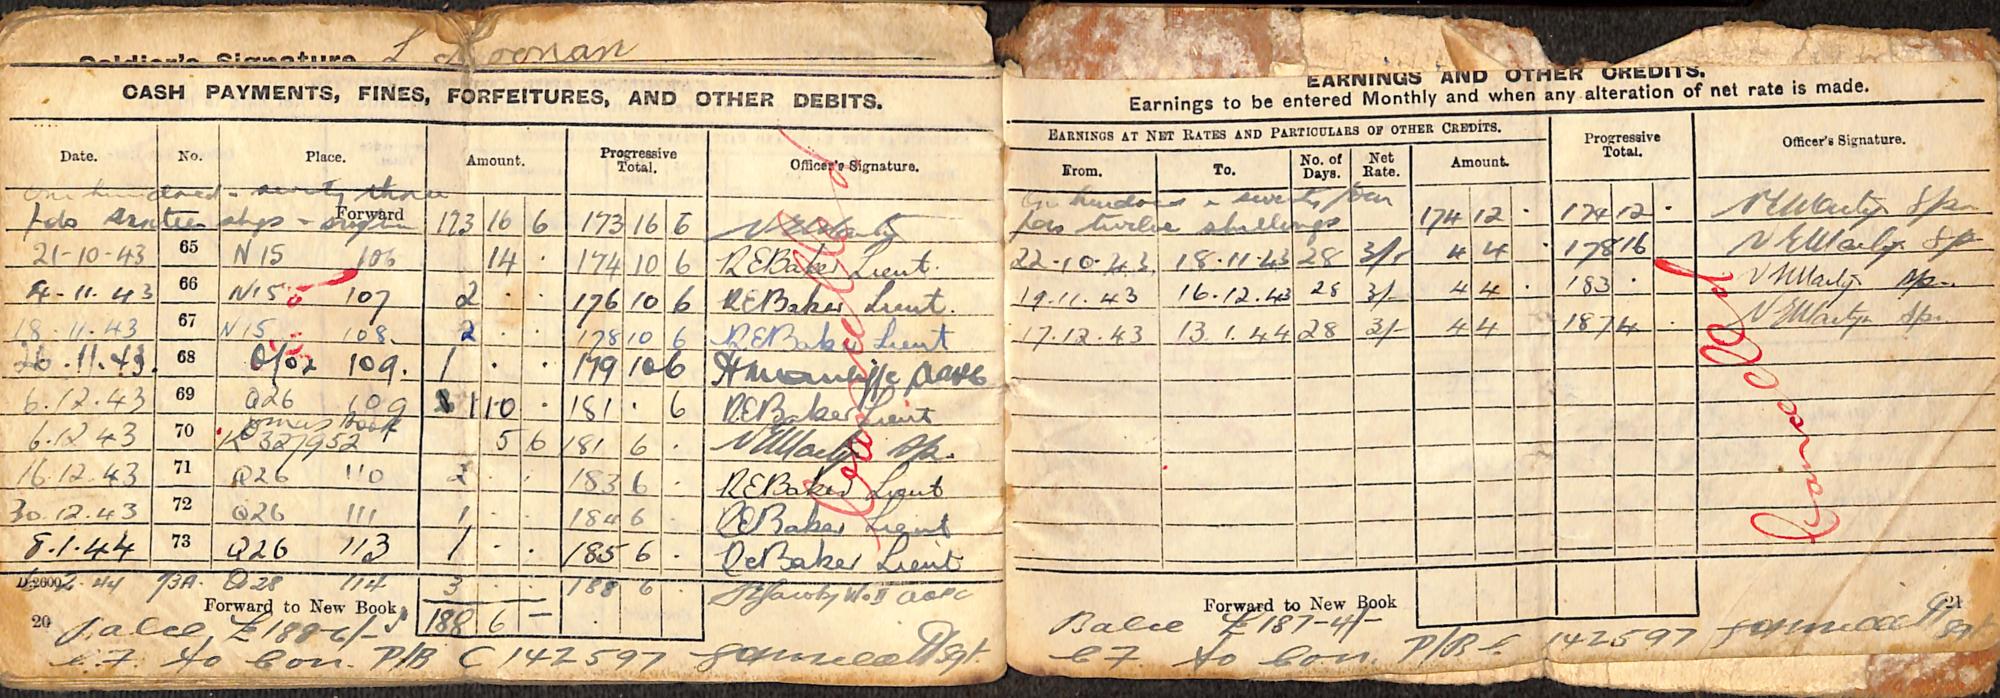 Soldier's Signature L Noonan
CASH PAYMENTS, FINES, FORFEITURES, AND OTHER DEBITS.
Date. No. Place. Amount. Progressive Total. Officer's Signature.
One hundred - seventy three
pds sixteen shgs - sixpence Forward 173 16 6 173 16 6
21-10-43 65 N15 106 14 . 174 10 6 REBaker Lieut.
4-11-43 66 N15 107 2 . . 176 10 6 REBaker Lieut.
18-11-43 67 N15 108. 2 . . 178 10 6 REBaker Lieut
26.11.43. 68 109. 1 . . 179 10 6
6.12.43 69 Q26 109 1 10 . 181 . 6 REBaker Lieut
Xmas Book
6.12.43 70 K327952 5 6 181 6 .
16.12.43 71 Q26 110 2 . . 183 6 . REBaker Lieut
30.12.43 72 Q26 111 1 . . 184 6 . REBaker Lieut
8.1.44 73 Q26 113 1 . . 185 6 . REBaker Lieut
2.44 73A. Q28 114 3 188 6 .
Forward to New Book 188 6 -
20 Balce, £188-6/-
C.F. to Con. P/B C 142597 Sgt.
Cancelled
EARNINGS AND OTHER CREDITS.
Earnings to be entered Monthly and when any alteration of net rate is made.
EARNINGS AT NET RATES AND PARTICULARS OF OTHER CREDITS. Progressive Total. Officer's Signature.
From. To. No. of Days. Net Rate. Amount.
One hundred - seventy four
pds twelve shillings 174 12 . 174 12 .
22.10.43. 18.11.43 28 3/- 4 4 . 178 16
19.11.43 16.12.43 28 3/- 4 4 . 183 .
17.12.43 13.1.44 28 3/- 4 4 . 187 4 .
Forward to New Book
21
Balce £187-4/-
C.F. to Con. P/B C 142597 Sgt
Cancelled